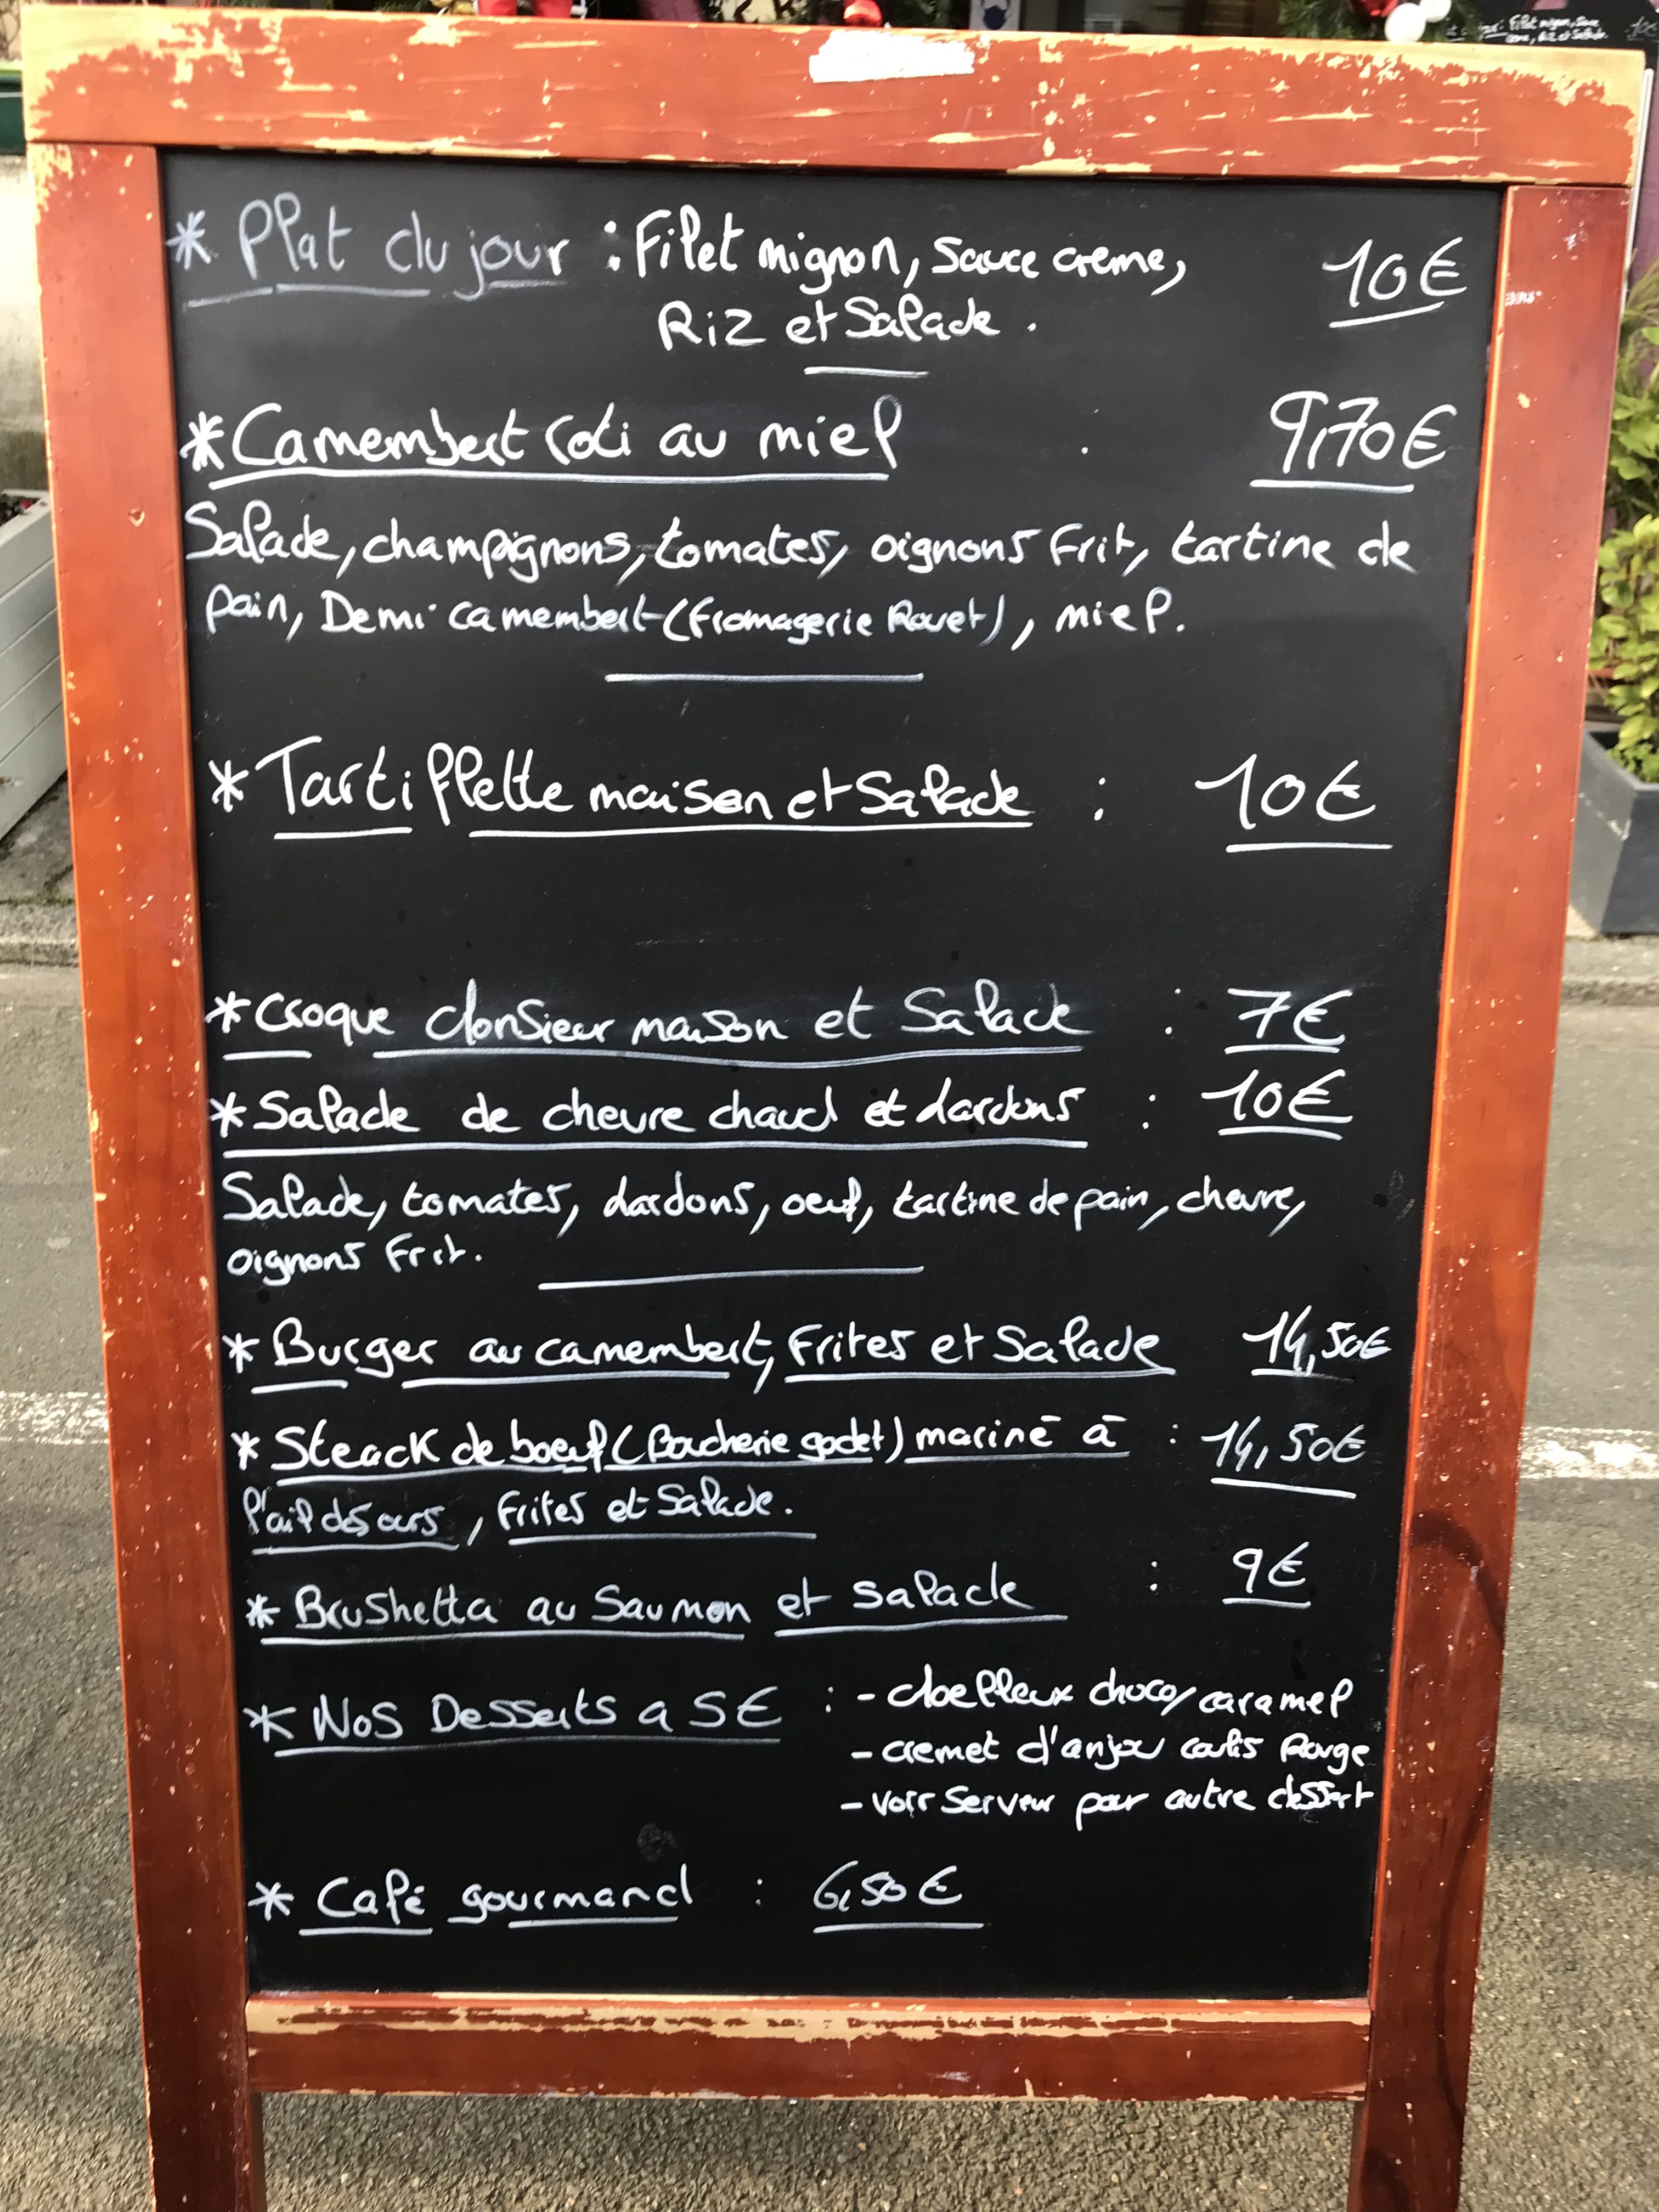 * Plat du jour : Filet mignon, Sauce creme, 10€
Riz et Salade.
* Camembert roti au miel 9,70€
Salade, champignons, tomates, oignons Frit, tartine de
pain, Demi camembert (Fromagerie Rouet), miel.
* Tartiflette maison et Salade : 10€
* Croque Monsieur maison et Salade : 7€
* Salade de chevre chaud et lardons : 10€
Salade, tomates, lardons, oeuf, tartine de pain, chevre,
oignons Frit.
* Burger au camembert, Frites et Salade 14,50€
* Steack de boeuf (Boucherie godet) mariné à : 14,50€
l'ail des ours, Frites et Salade.
* Brushetta au Saumon et salade : 9€
* Nos Desserts a 5€ : - Moelleux choco/caramel
- cremet d'anjou coulis Rouge
- voir Serveur pour autre dessert
* Café gourmand : 6,50€